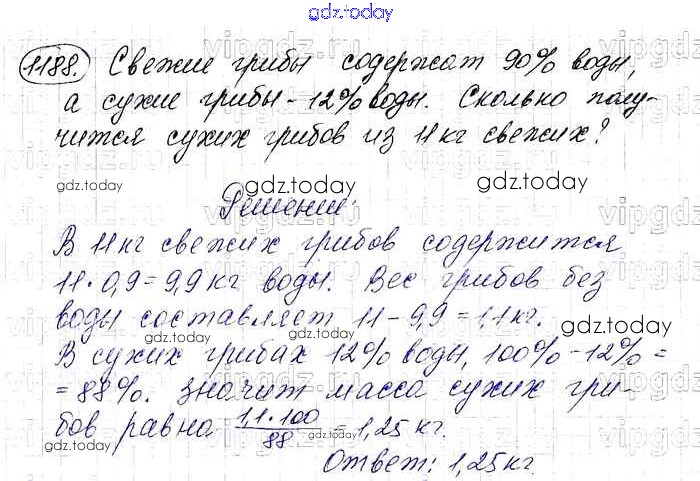 gdz.today
1188. Свежие грибы содержат 90% воды,
а сухие грибы - 12% воды. Сколько полу-
чится сухих грибов из 11 кг свежих?
gdz.today
gdz.today
gdz.today
Решение:
В 11 кг свежих грибов содержится
11 · 0,9 = 9,9 кг воды. Вес грибов без
воды составляет 11 - 9,9 = 1,1 кг.
gdz.today
gdz.today
В сухих грибах 12% воды, 100% - 12% =
= 88%. Значит масса сухих гри-
бов равна 1,1 · 100 / 88 = 1,25 кг.
gdz.today
gdz.today
Ответ: 1,25 кг.